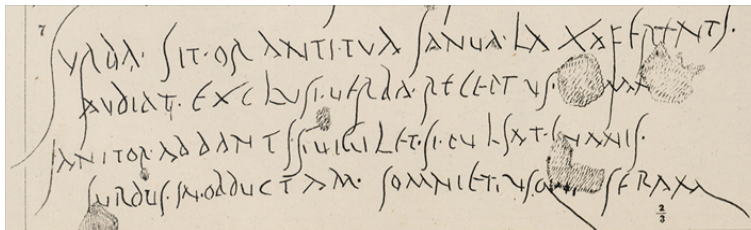 7
SVRDA· SIT·ORANTI·TVA IANVA·LAXA FERENTI·
AVDIAT· EXCLVSI·VERBA·RECEPTVS·
IANITOR·AD DANTIS VIGILET·SI·PVLSAT·INANIS·
SVRDVS·IN·OBDVCTAM· SOMNIET·VSQ SERAM
2/3